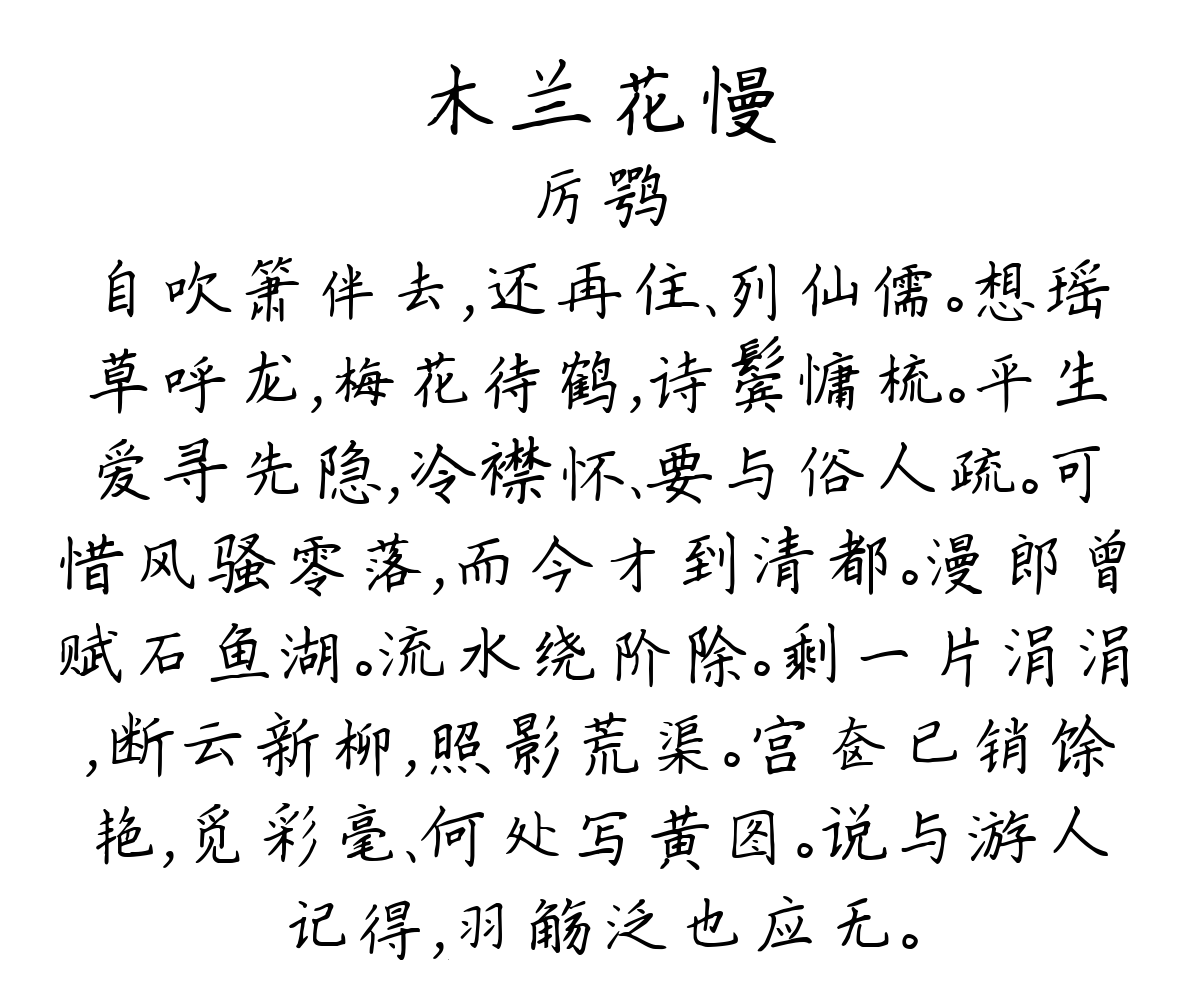 木兰花慢
厉鹗
自吹箫伴去,还再住、列仙儒。想瑶
草呼龙,梅花待鹤,诗鬓慵梳。平生
爱寻先隐,冷襟怀、要与俗人疏。可
惜风骚零落,而今才到清都。漫郎曾
赋石鱼湖。流水绕阶除。剩一片涓涓
,断云新柳,照影荒渠。宫奁已销馀
艳,觅彩毫、何处写黄图。说与游人
记得,羽觞泛也应无。